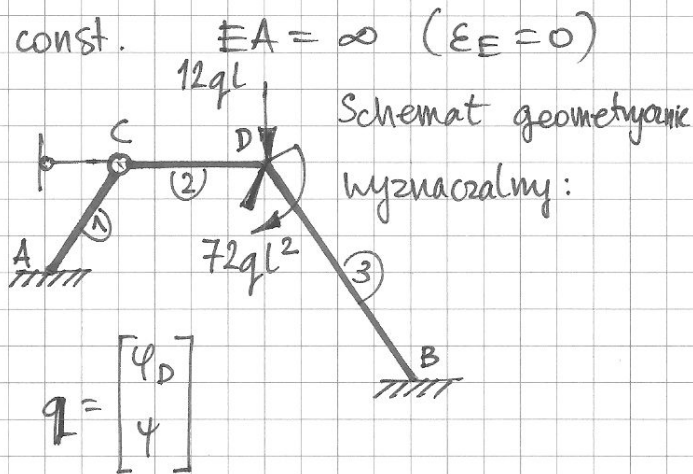 const. EA = ∞ (ε_E = 0)
12ql
Schemat geometrycznie
wyznaczalny:
C
D
2
1
A
72ql²
3
B
q = [φ_D
ψ]